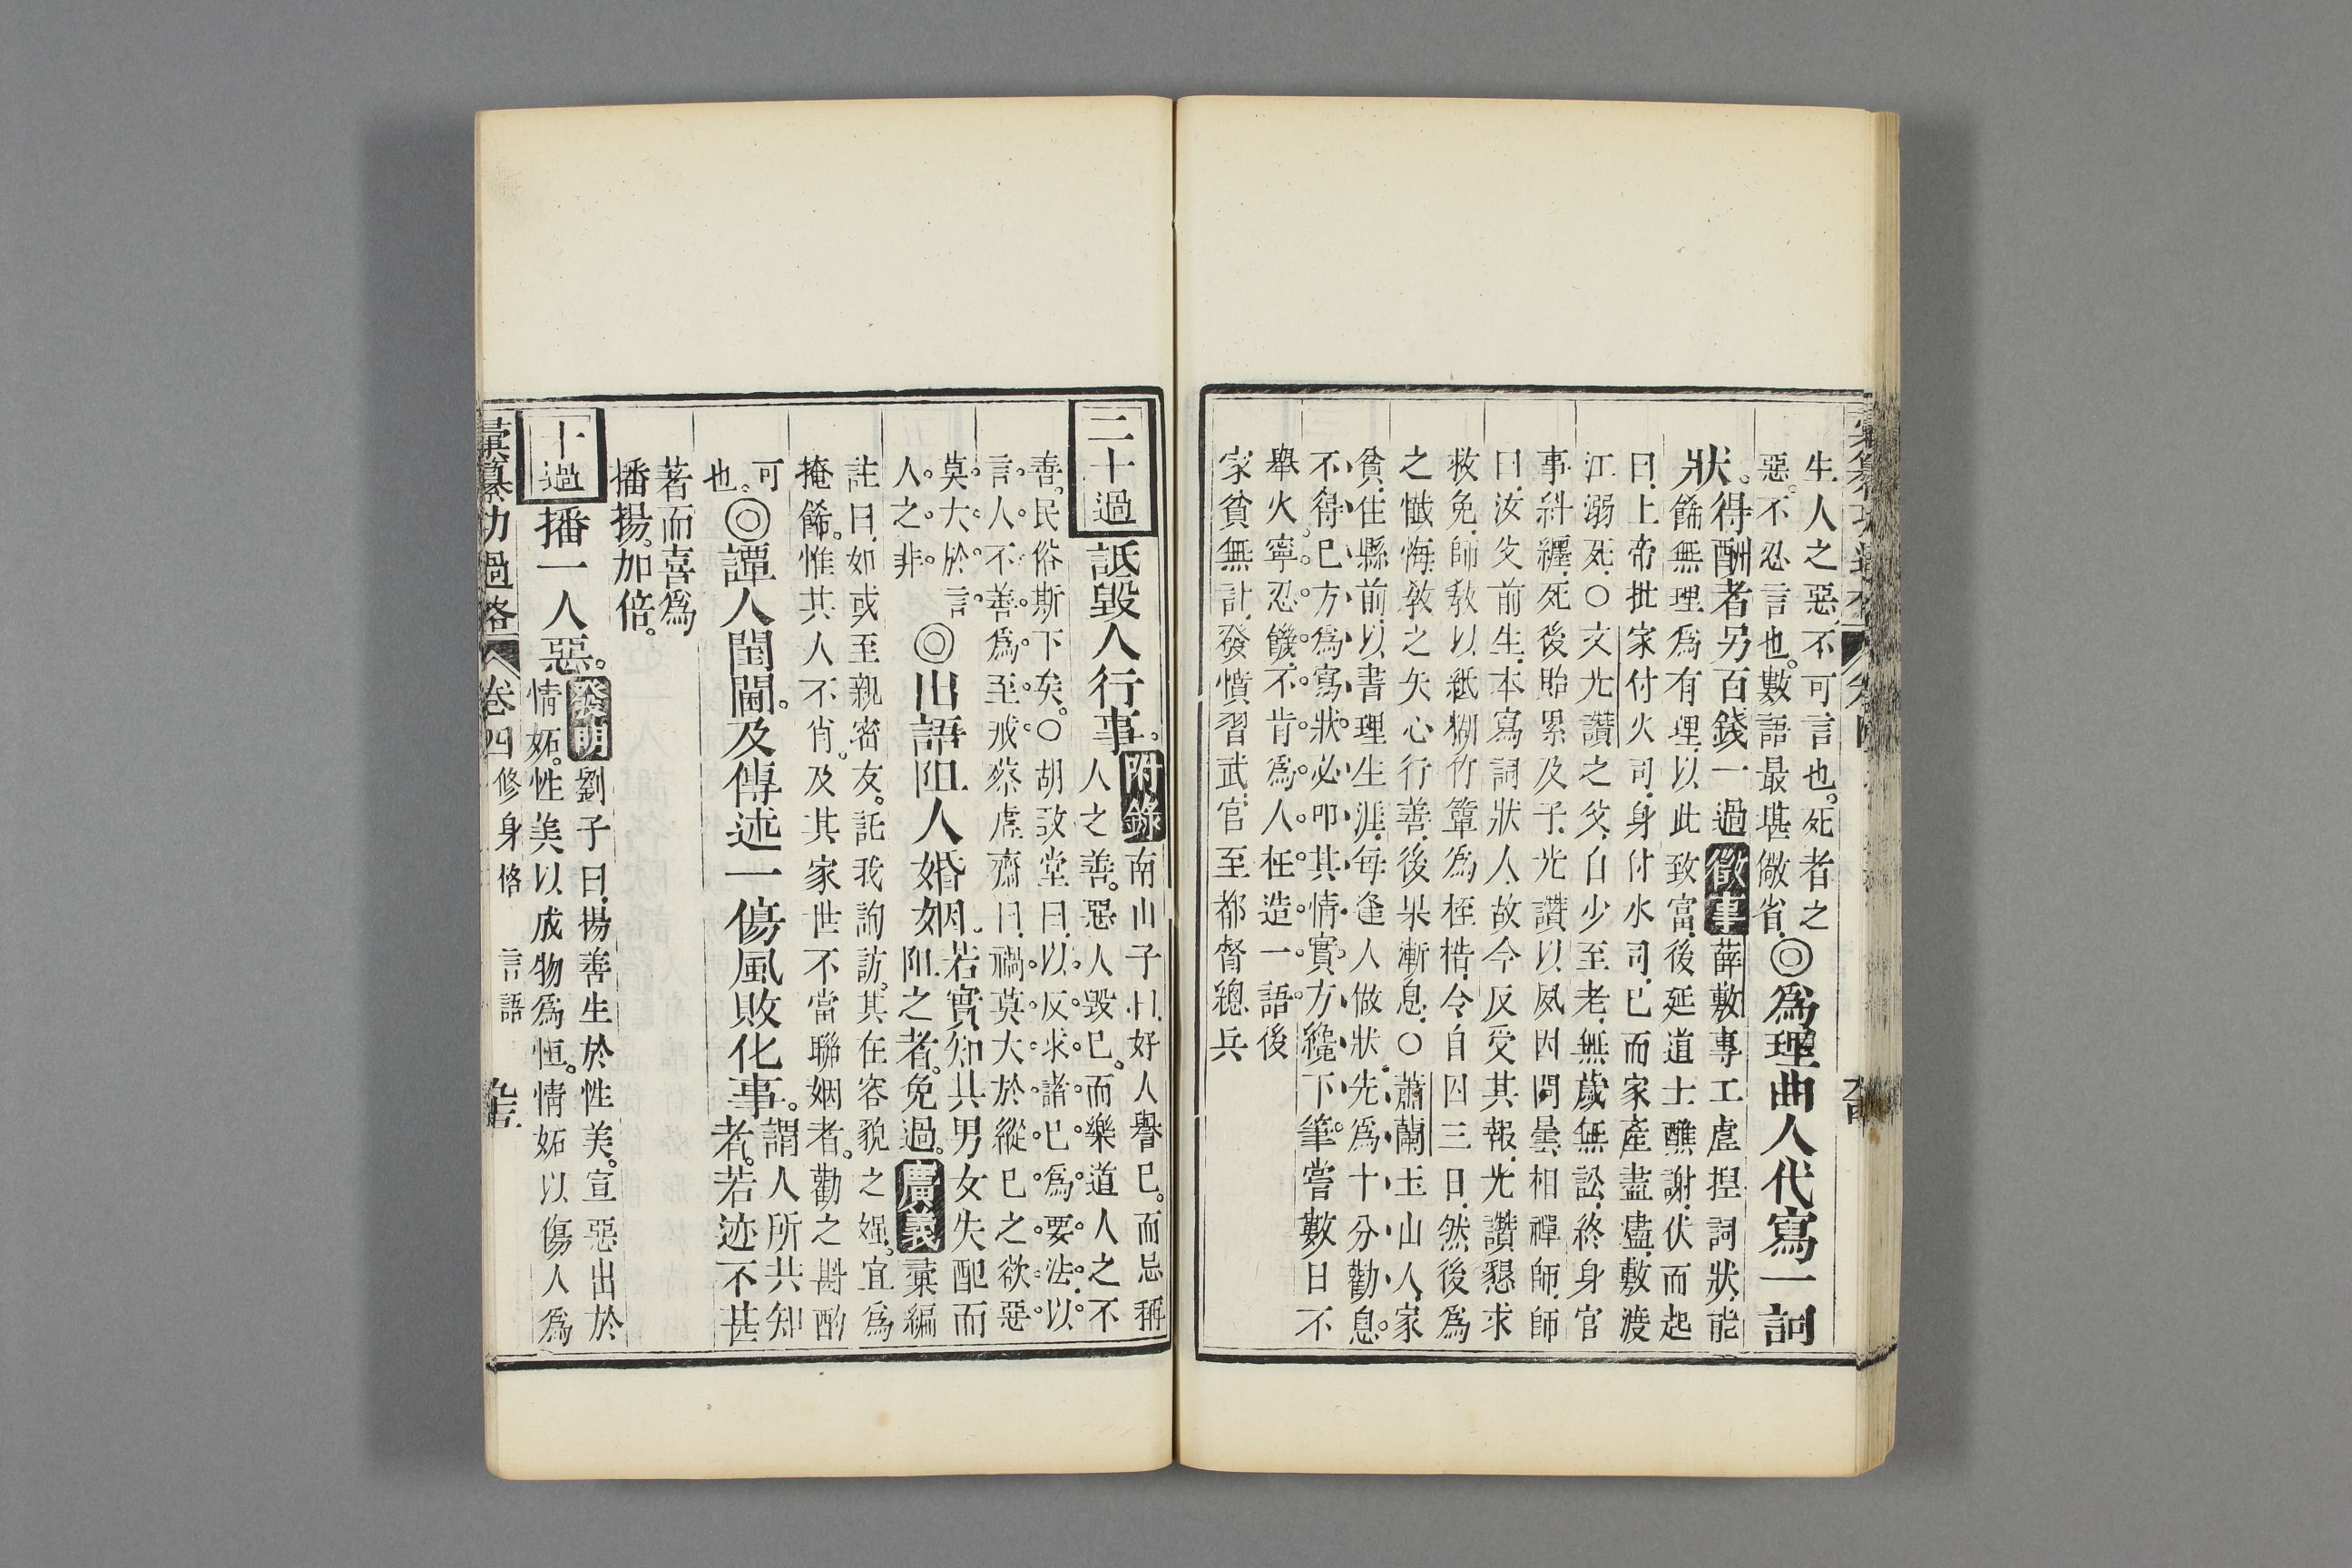 生人之惡不可言也。死者之
惡。不忍言也。數語最堪儆省。◎爲理曲人代寫一詞
狀。得酬者另百錢一過徵事薛敷專工虛揑詞狀能
餙無理爲有理以此致富後延道士醮謝伏而起
曰上帝批家付火司身付水司已而家產盡燼敷渡
江溺死○文光讚之父自少至老無歲無訟終身官
事糾纏死後貽累及子光讚以夙因問曇相禪師師
曰汝父前生本寫詞狀人故今反受其報光讚懇求
救免師教以紙糊竹簞爲桎梏令自囚三日然後爲
之懺悔教之矢心行善後果漸息○蕭蘭玉山人家
貧住縣前以書理生涯每逢人做狀先爲十分勸息。
不得已方爲寫狀必叩其情實方纔下筆嘗數日不
舉火寧忍饑不肯爲人枉造一語後
家貧無計發憤習武官至都督總兵
二十過 詆毀人行事。附錄南山子曰好人譽已。而忌稱
人之善。惡人毀已。而樂道人之不
善。民俗斯下矣。○胡敬堂曰以反求諸已爲要法以
言人不善爲至戒蔡虛齋曰禍莫大於縱已之欲惡
莫大於言
人之非 ◎出語阻人婚姻。若實知其男女失配而
阻之者。免過。廣義彙編
註曰如或至親密友。託我詢訪。其在容貌之媸。宜爲
掩餙。惟其人不肖。及其家世不當聯姻者。勸之斟酌
可
也。◎譚人閨閫。及傳述一傷風敗化事。謂人所共知
者。若迹不甚
著而喜爲
播揚。加倍。
十過 播一人惡。發明劉子曰揚善生於性美。宣惡出於
情妬。性美以成物爲恒。情妬以傷人爲
彙纂功過格 卷四 修身格 言語